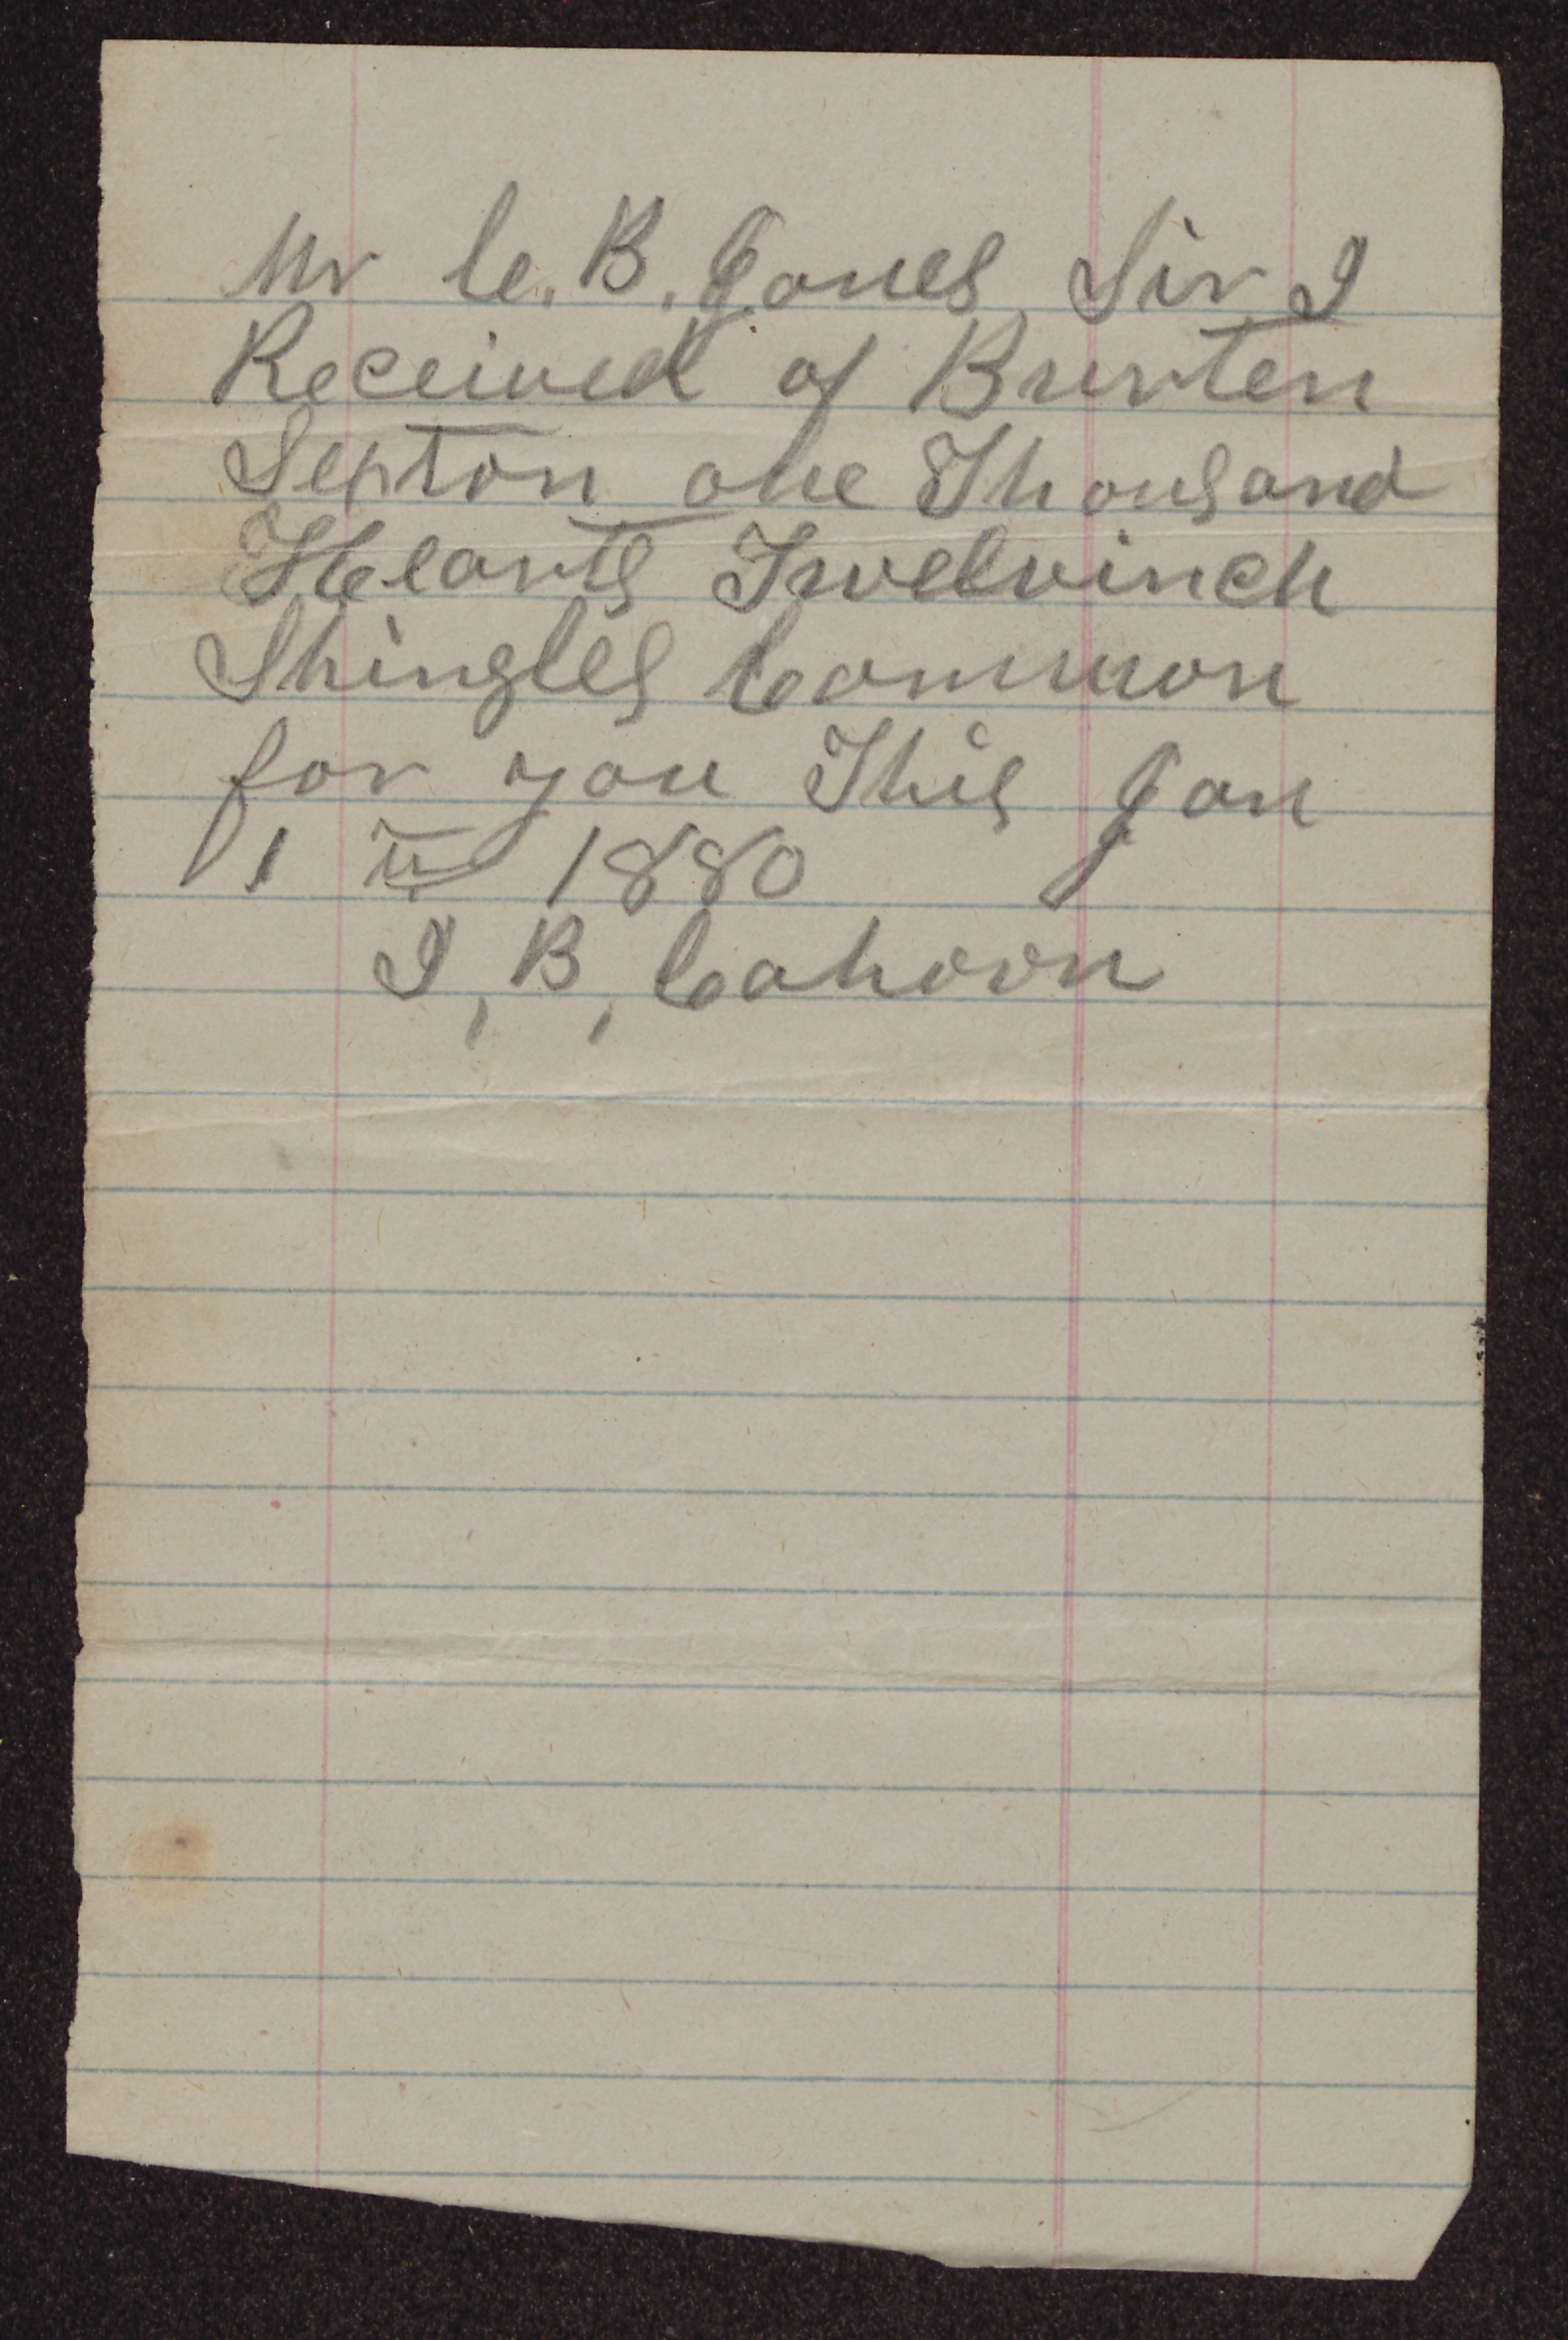 Mr C. B. Jones Sir I
Received of Burten
Sexton one Thousand
Hearts Twelvinch
Shingles Common
for you This Jan
1 1880
I, B, Cahoon